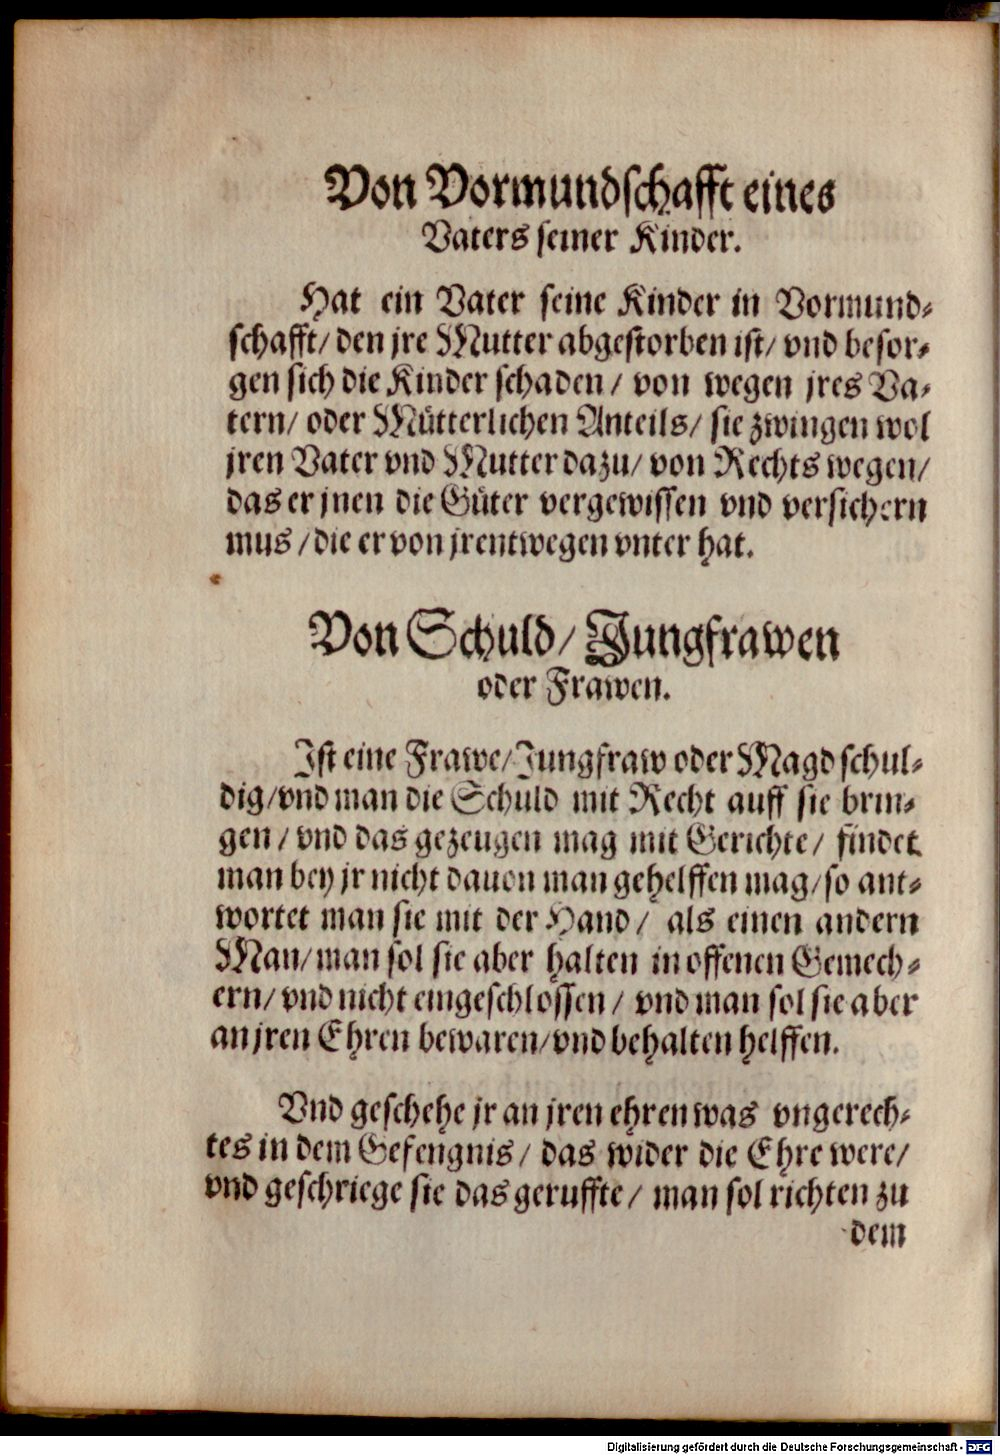 Von Vormundschafft eines
Vaters seiner Kinder.
Hat ein Vater seine Kinder in Vormund-
schafft/ den jre Mutter abgestorben ist/ vnd besor-
gen sich die Kinder schaden/ von wegen jres Va-
tern/ oder Mütterlichen Anteils/ sie zwingen wol
jren Vater vnd Mutter dazu/ von Rechts wegen/
das er jnen die Güter vergewissen vnd versichern
mus/ die er von jrentwegen vnter hat.
Von Schuld/ Jungfrawen
oder Frawen.
Ist eine Frawe/ Jungfraw oder Magd schul-
dig/ vnd man die Schuld mit Recht auff sie brin-
gen/ vnd das gezeugen mag mit Gerichte/ findet
man bey jr nicht dauon man gehelffen mag/ so ant-
wortet man sie mit der Hand/ als einen andern
Man/ man sol sie aber halten in offenen Gemech-
ern/ vnd nicht eingeschlossen/ vnd man sol sie aber
an jren Ehren bewaren/ vnd behalten helffen.
Vnd geschehe jr an jren ehren was vngerech-
tes in dem Gefengnis/ das wider die Ehre were/
vnd geschriege sie das geruffte/ man sol richten zu
dem
Digitalisierung gefördert durch die Deutsche Forschungsgemeinschaft - DFG